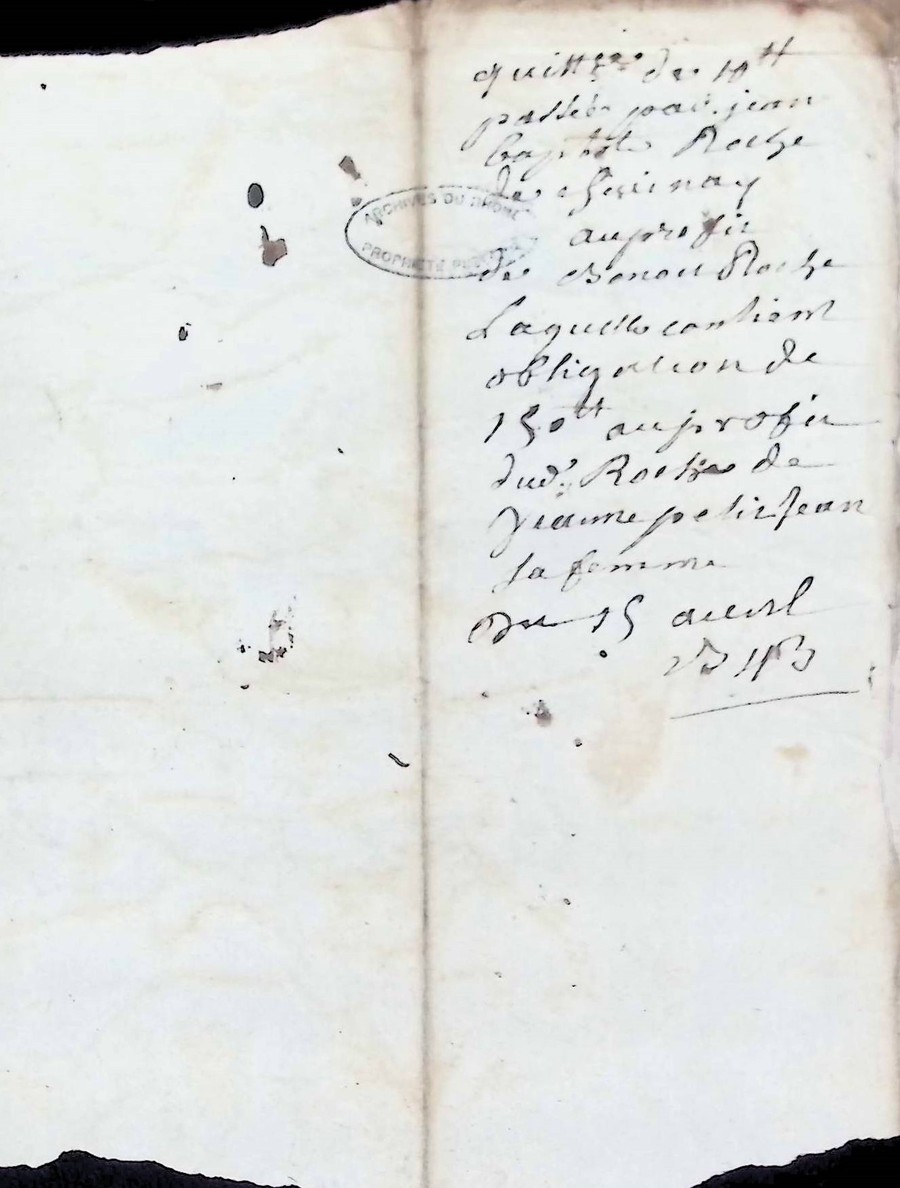 quitt.ce de 10tt
passée par jean
baptiste Roche
de
au profit
de Benoit Roche
Laquelle contient
obligation de
150tt au profit
dud. Roche de
petit Jean
sa femme
Du 15 avvril
ARCHIVES DU RHÔNE
PROPRIÉTÉ PUBLIQUE